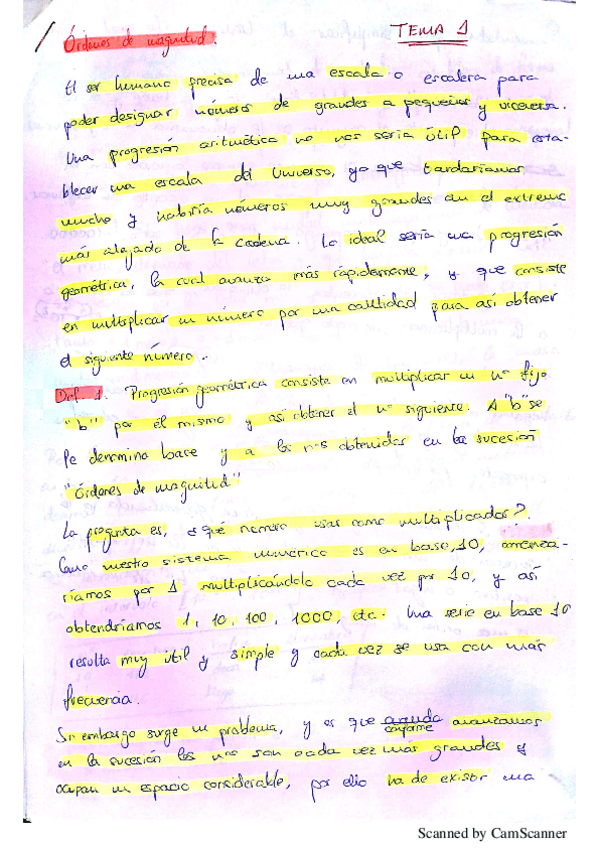 Órdenes de magnitud.
TEMA 1
El ser humano precisa de una escala o escalera para
poder designar números de grandes a pequeños y viceversa.
Una progresión aritmética no nos sería útil para esta-
blecer una escala del Universo, ya que tardaríamos
mucho y habría números muy grandes en el extremo
más alejado de la cadena. Lo ideal sería una progresión
geométrica, la cual avanza más rápidamente, y que consiste
en multiplicar un número por una cantidad para así obtener
el siguiente número.
Def. 1. Progresión geométrica consiste en multiplicar un nº fijo
"b" por él mismo y así obtener el nº siguiente. A "b" se
le denomina base y a los nºs obtenidos en la sucesión
"órdenes de magnitud"
La pregunta es, ¿qué número usar como multiplicador?.
Como nuestro sistema numérico es en base 10, comenza-
ríamos por 1 multiplicándolo cada vez por 10, y así
obtendríamos 1, 10, 100, 1000, etc. Una serie en base 10
resulta muy útil y simple y cada vez se usa con más
frecuencia.
Sin embargo surge un problema, y es que conforme avanzamos
en la sucesión los nos son cada vez más grandes y
ocupan un espacio considerable, por ello ha de existir una
Scanned by CamScanner